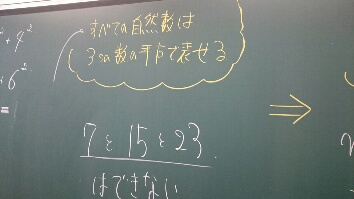 +4²
+6²
=
すべての自然数は
3つの数の平方で表せる
⇒
7と15と23
はできない